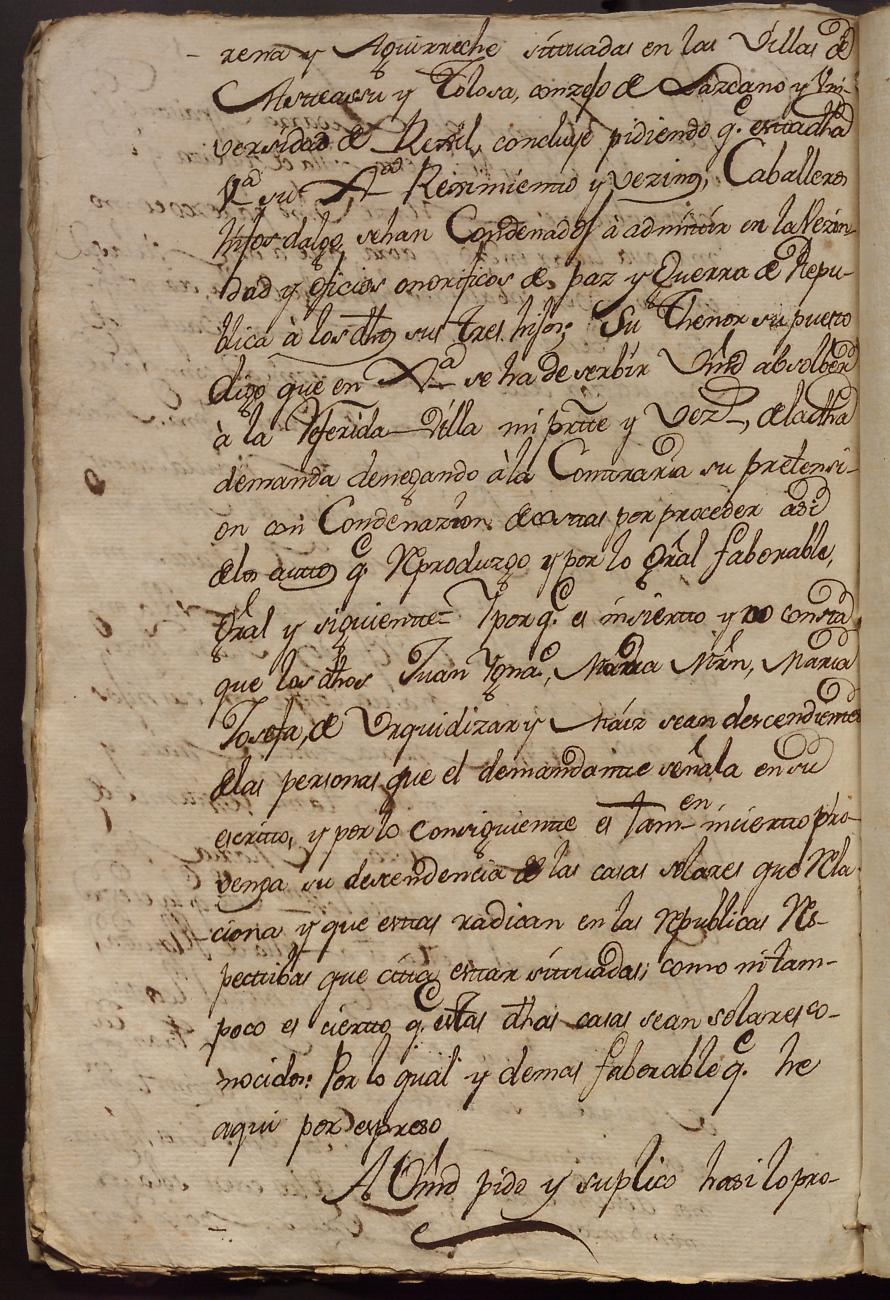 rena y Aguirreche sittuadas en las Villas de
Astteassu y Tolosa, conzejo de Lazcano y Vni-
versidad de Rexil, concluye pidiendo q.e esta dha
V.a su Jus.a Reximientto y vezinos, Caballeros
hijos dalgo, sehan Condenados à admittir en la Vezin-
dad y oficios onorificos de paz y Guerra de Repu-
blica à los dhos sus tres hijos; Su Thenor supuesto
digo que en Jus.a se ha de serbir Vmd absolber
à la Referida Villa mi partte y Vez.s, de la dha
demanda denegando à la Conttraria su prettensi-
on con Condenazion de costtas por proceder asi
de los auttos q.e Reproduzgo y por lo Gral faborable,
Gral y siguientte= Y por q.e es insiertto y no constta
que los dhos Juan Ygna.o, Maria Mrn, Maria
Josefa, de Urquidizar y háiz sean descendienttes
de las personas que el demandantte señala en su
escritto, y por lo consiguientte es tam-
en
inciertto pro-
venga su descendencia de las casas solares que Rela
ciona y que esttas radican en las Republicas Res-
pecttibas que citta esttar sittuadas; como ni tam-
poco es ciertto q.e estas dhas casas sean solares co-
nocidos: Por lo qual y demas faborable q.e he
aqui por espreso
A Vmd pido y suplico hasi lo pro-